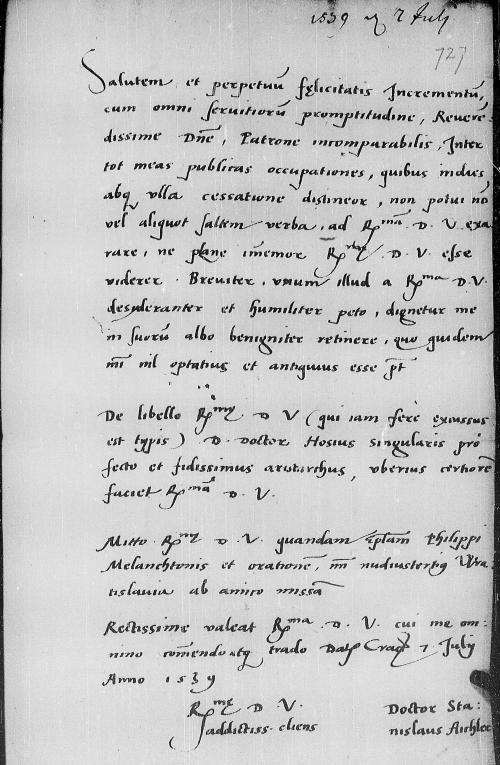 1539 7 Julij
727
Salutem et perpetuū fęlicitatis Incrementū,
cum omni seruitiorū promptitudine, Reueren:
dissime Dn̄e, Patrone incomparabilis, Inter
tot meas publicas occupationes, quibus indies,
absq̨ vlla cessatione distineor, non potui nō
vel aliquot saltem verba, ad Rma D. V. exa
rare, ne plane im̄emor D. V. esse
viderer. Breuiter, vnum illud a Rma D. V.
desyderanter et humiliter peto, dignetur me
in suorū albo benigniter retinere, quo quidem
mī nil optatius et antiquius esse pt̄
De libello Rmę D V (qui iam fere excussus
est typis) D. Doctor Hosius singularis pro
fecto et fidissimus aristarchus, vberius certiorē
faciet Rmā D. V.
Mitto Rmę D V. quandam ep̄lam Philippi
Melanchtonis et orationē, mī nudiustertiq Wra
tislauia ab amico missā
Rectissime valeat Rma D. V. cui me om:
nino com̄endo atq trado Datę Cracę 7 Julij
Anno 1539
Rmę D V.
addictiss. cliens
Doctor Sta:
nislaus Aichler